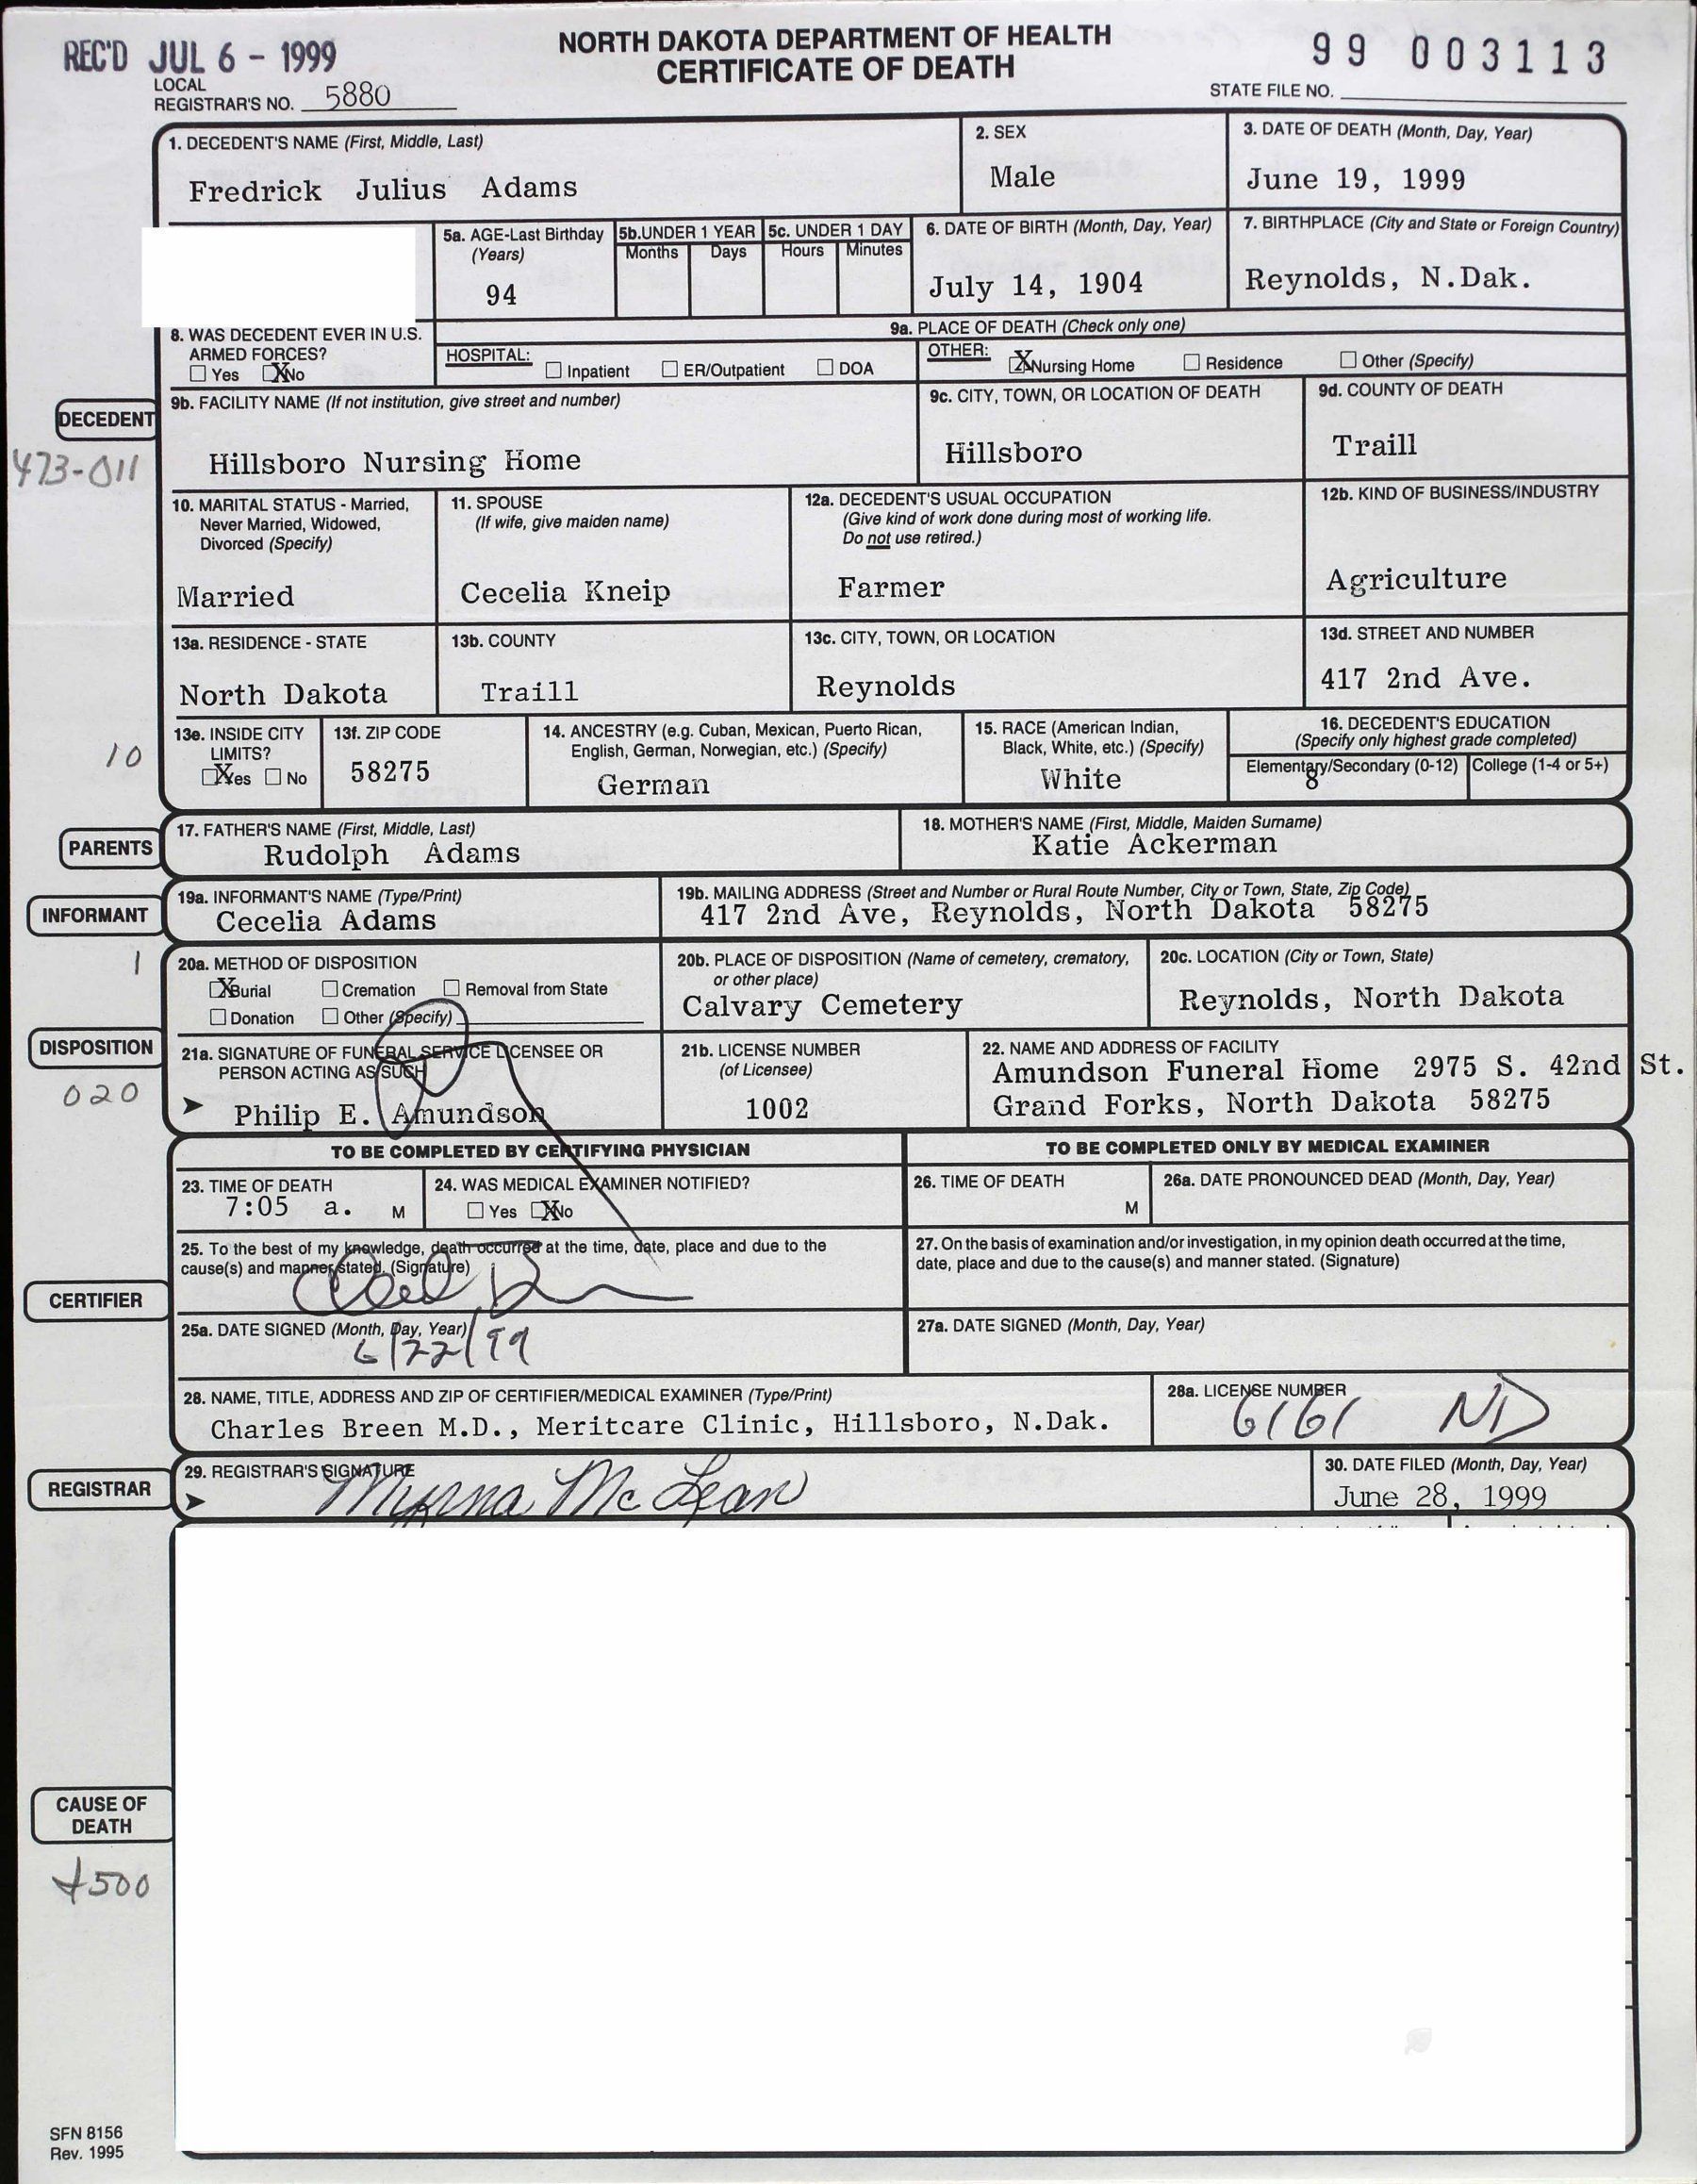 REC'D JUL 6 - 1999
NORTH DAKOTA DEPARTMENT OF HEALTH
CERTIFICATE OF DEATH
99 003113
LOCAL
REGISTRAR'S NO. 5880
STATE FILE NO.
1. DECEDENT'S NAME (First, Middle, Last)
Fredrick Julius Adams
2. SEX
Male
3. DATE OF DEATH (Month, Day, Year)
June 19, 1999
5a. AGE-Last Birthday
(Years)
94
5b.UNDER 1 YEAR
Months Days
5c. UNDER 1 DAY
Hours Minutes
6. DATE OF BIRTH (Month, Day, Year)
July 14, 1904
7. BIRTHPLACE (City and State or Foreign Country)
Reynolds, N.Dak.
8. WAS DECEDENT EVER IN U.S.
ARMED FORCES?
Yes X No
9a. PLACE OF DEATH (Check only one)
HOSPITAL: Inpatient ER/Outpatient DOA
OTHER: X Nursing Home Residence Other (Specify)
DECEDENT
473-011
9b. FACILITY NAME (If not institution, give street and number)
Hillsboro Nursing Home
9c. CITY, TOWN, OR LOCATION OF DEATH
Hillsboro
9d. COUNTY OF DEATH
Traill
10. MARITAL STATUS - Married,
Never Married, Widowed,
Divorced (Specify)
Married
11. SPOUSE
(If wife, give maiden name)
Cecelia Kneip
12a. DECEDENT'S USUAL OCCUPATION
(Give kind of work done during most of working life.
Do not use retired.)
Farmer
12b. KIND OF BUSINESS/INDUSTRY
Agriculture
13a. RESIDENCE - STATE
North Dakota
13b. COUNTY
Traill
13c. CITY, TOWN, OR LOCATION
Reynolds
13d. STREET AND NUMBER
417 2nd Ave.
10
13e. INSIDE CITY
LIMITS?
X Yes No
13f. ZIP CODE
58275
14. ANCESTRY (e.g. Cuban, Mexican, Puerto Rican,
English, German, Norwegian, etc.) (Specify)
German
15. RACE (American Indian,
Black, White, etc.) (Specify)
White
16. DECEDENT'S EDUCATION
(Specify only highest grade completed)
Elementary/Secondary (0-12) College (1-4 or 5+)
8
PARENTS
17. FATHER'S NAME (First, Middle, Last)
Rudolph Adams
18. MOTHER'S NAME (First, Middle, Maiden Surname)
Katie Ackerman
INFORMANT
19a. INFORMANT'S NAME (Type/Print)
Cecelia Adams
19b. MAILING ADDRESS (Street and Number or Rural Route Number, City or Town, State, Zip Code)
417 2nd Ave, Reynolds, North Dakota 58275
1
20a. METHOD OF DISPOSITION
X Burial Cremation Removal from State
Donation Other (Specify)
20b. PLACE OF DISPOSITION (Name of cemetery, crematory,
or other place)
Calvary Cemetery
20c. LOCATION (City or Town, State)
Reynolds, North Dakota
DISPOSITION
020
21a. SIGNATURE OF FUNERAL SERVICE LICENSEE OR
PERSON ACTING AS SUCH
Philip E. Amundson
21b. LICENSE NUMBER
(of Licensee)
1002
22. NAME AND ADDRESS OF FACILITY
Amundson Funeral Home 2975 S. 42nd St.
Grand Forks, North Dakota 58275
TO BE COMPLETED BY CERTIFYING PHYSICIAN
TO BE COMPLETED ONLY BY MEDICAL EXAMINER
23. TIME OF DEATH
7:05 a. M
24. WAS MEDICAL EXAMINER NOTIFIED?
Yes X No
26. TIME OF DEATH
M
26a. DATE PRONOUNCED DEAD (Month, Day, Year)
25. To the best of my knowledge, death occurred at the time, date, place and due to the
cause(s) and manner stated. (Signature)
27. On the basis of examination and/or investigation, in my opinion death occurred at the time,
date, place and due to the cause(s) and manner stated. (Signature)
CERTIFIER
25a. DATE SIGNED (Month, Day, Year)
6/22/99
27a. DATE SIGNED (Month, Day, Year)
28. NAME, TITLE, ADDRESS AND ZIP OF CERTIFIER/MEDICAL EXAMINER (Type/Print)
Charles Breen M.D., Meritcare Clinic, Hillsboro, N.Dak.
28a. LICENSE NUMBER
6161 ND
REGISTRAR
29. REGISTRAR'S SIGNATURE
Myrna McLean
30. DATE FILED (Month, Day, Year)
June 28, 1999
CAUSE OF
DEATH
+500
SFN 8156
Rev. 1995